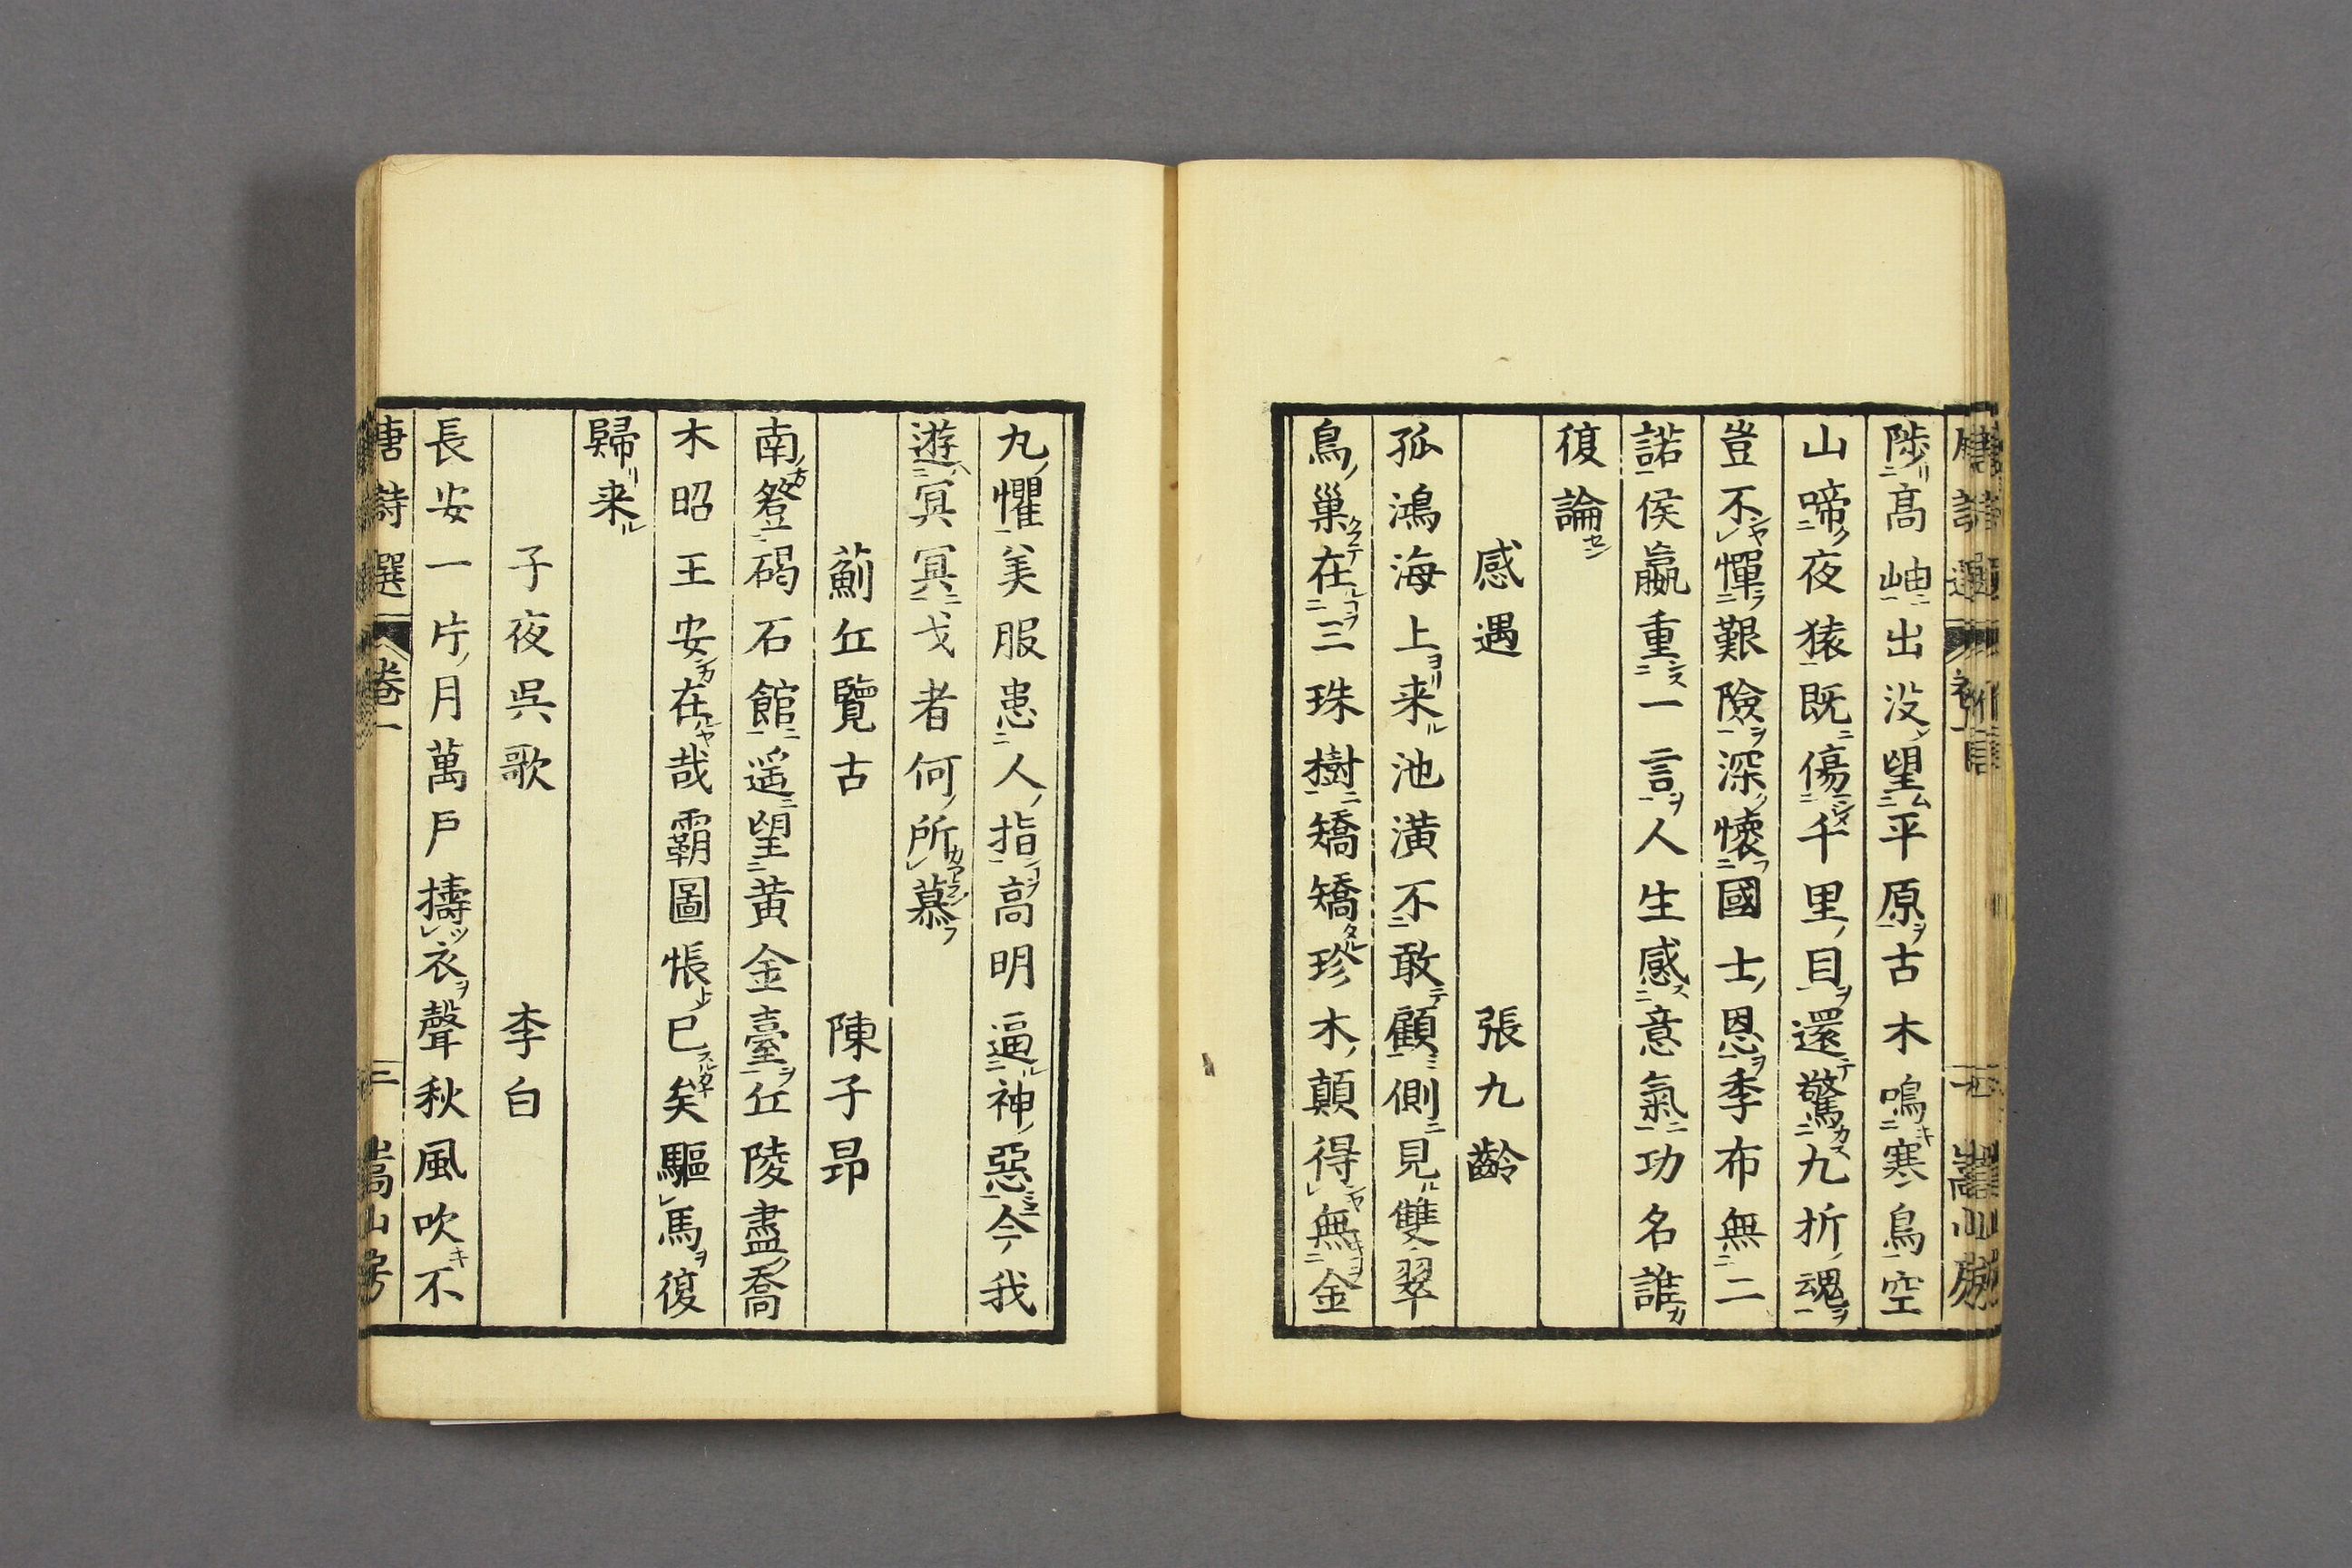 陟高岫出没望平原古木鳴寒鳥空
山啼夜猿既傷千里目還驚九折魂
豈不憚艱險深懷國士恩季布無二
諾侯嬴重一言人生感意氣功名誰
復論
感遇 張九齡
孤鴻海上来池潢不敢顧側見雙翠
鳥巢在三珠樹矯矯珍木顛得無金
九懼美服患人指高明逼神惡今我
遊冥冥弋者何所慕
薊丘覽古 陳子昂
南登碣石館遥望黄金臺丘陵盡喬
木昭王安在哉霸圖悵已矣驅馬復
歸来
子夜呉歌 李白
長安一片月萬戸擣衣聲秋風吹不
唐詩選 卷一 三 嵩山房